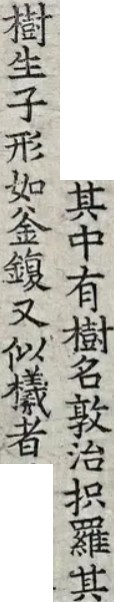 其中有樹名敦治抧羅其
樹生子形如釜鍑又似檥者